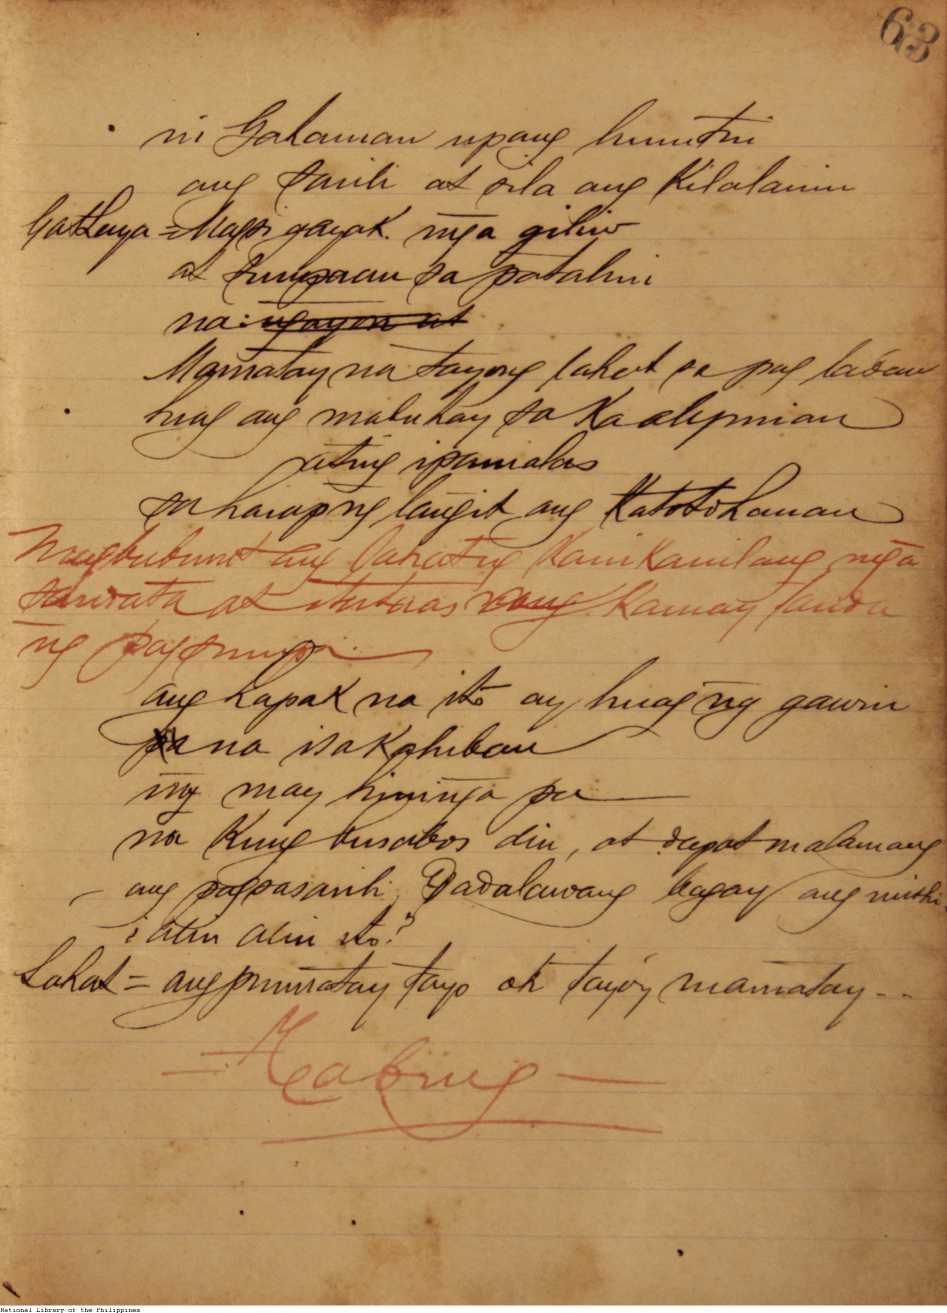 63
ni Galaman upang humiti
ang sarili at sila ang Kilalanin
Gatlaya = Magsi gayak. mga giliw
at sumpaan sa patalim
na: ngayon at
Mamatay na tayong lahat sa pag laban
huag ang mabuhay sa Kaalipnian
ating ipamalas
sa harap ng langit ang Katotohanan
Magbubunot ang lahat ng Kanikanilang mga
sandata at itataas ang Kamay tanda
ng pagsumpa
ang hapak na ito ay huag ng gawin
na isa Kahiban
may hininga pa
na Kung busabos din, at dapat malamang
ang pagsasarili, Dadalawang bagay ang mithi
i atin alin ito?
Lahat = ang pumatay tayo at tayo'y mamatay--
= Tabing =
National Library of the Philippines